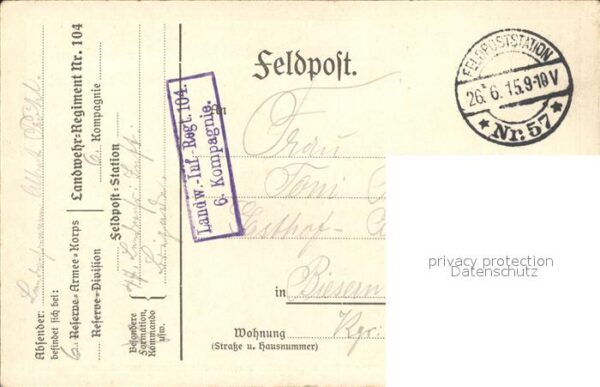 Absender: Landwehrmann
befindet sich bei:
6. Reserve-Armee-Korps
Reserve-Division
Landwehr-Regiment Nr. 104
6. Kompagnie
Feldpost-Station
Besondere
Formation,
Kommando
usw.
Landw.-Inf.-Regt. 104.
6. Kompagnie.
Feldpost.
FELDPOSTSTATION
26.6.15.9-10V
★ Nr. 57 ★
An
Frau
Toni
Gasthof-
in Biesern
Wohnung Kgr.
(Straße u. Hausnummer)
privacy protection
Datenschutz